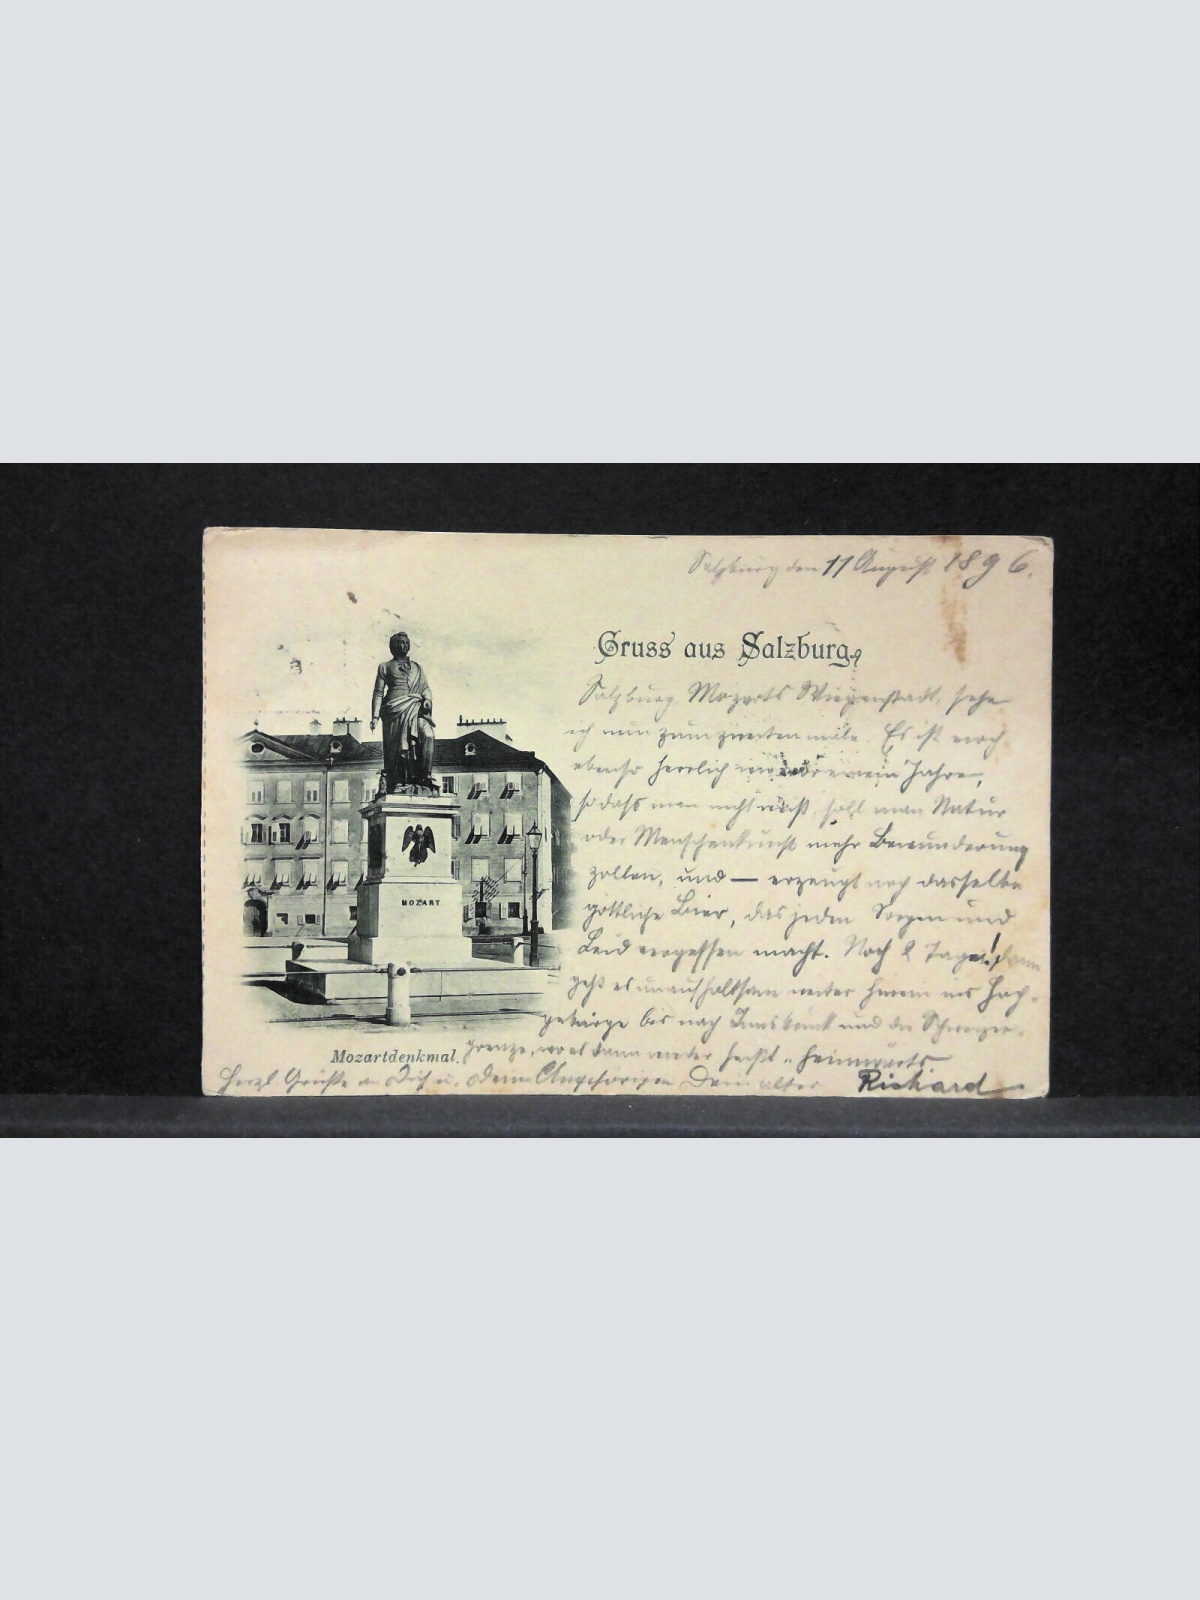 Salzburg den 11 August 1896.
Gruss aus Salzburg
Salzburg, Mozarts Wiegenstadt, sehe
ich nun zum zweiten male. Es ist noch
ebenso herrlich wie vor einem Jahre,
so dass man nicht weiß, soll man Natur
oder Menschenkunst mehr Bewunderung
zollen, und — erzeugt noch dasselbe
göttliche Bier, das jeden Sorgen und
Leid vergessen macht. Noch 2 Tage! dann
geht es unaufhaltsam weiter hinein ins Hoch-
gebirge bis nach Innsbruck und die Schweizer-
MOZART
Mozartdenkmal.
grenze, wo es dann wieder heißt „heimwärts
Herzl Grüße an Dich u. Deine Angehörigen Dein alter Richard